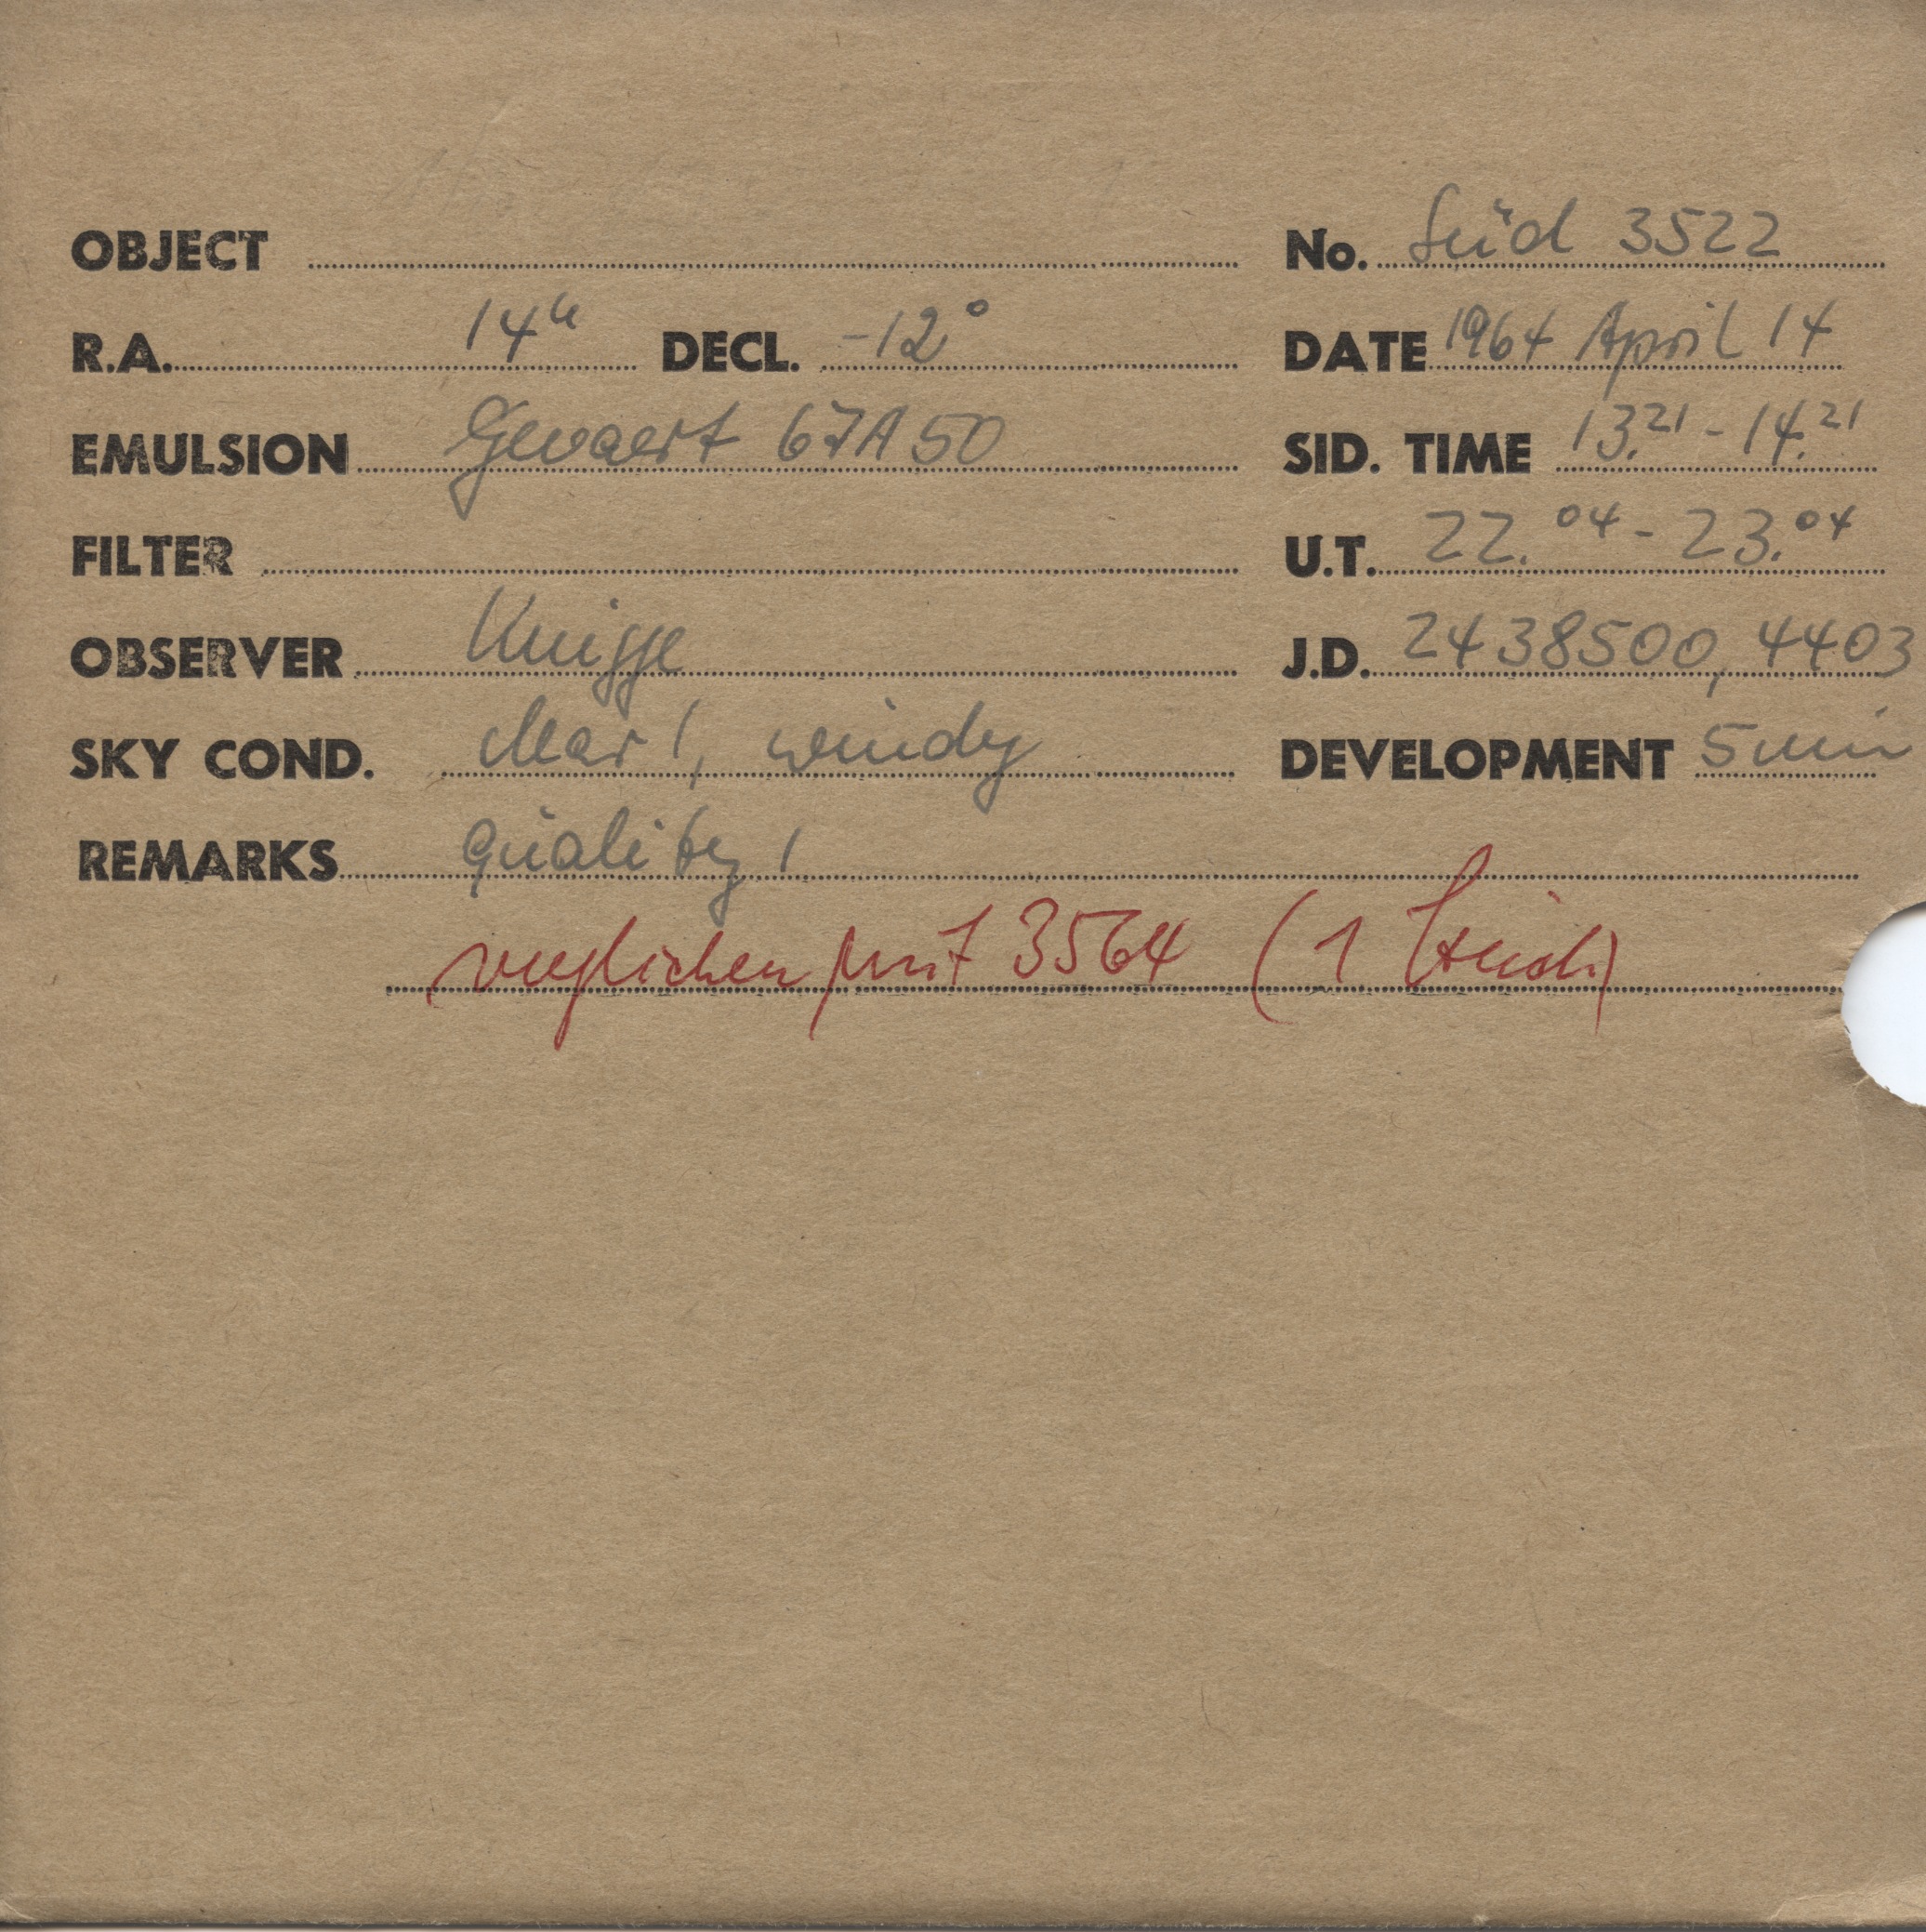 OBJECT No. Süd 3522
R.A. 14h DECL. -12°
DATE 1964 April 14
EMULSION Gevaert 67A50
SID. TIME 13.21 - 14.21
FILTER
U.T. 22.04 - 23.04
OBSERVER Knigge
J.D. 2438500,4403
SKY COND. clear 1, windy
DEVELOPMENT 5 min
REMARKS Quality 1
verglichen mit 3564 (1